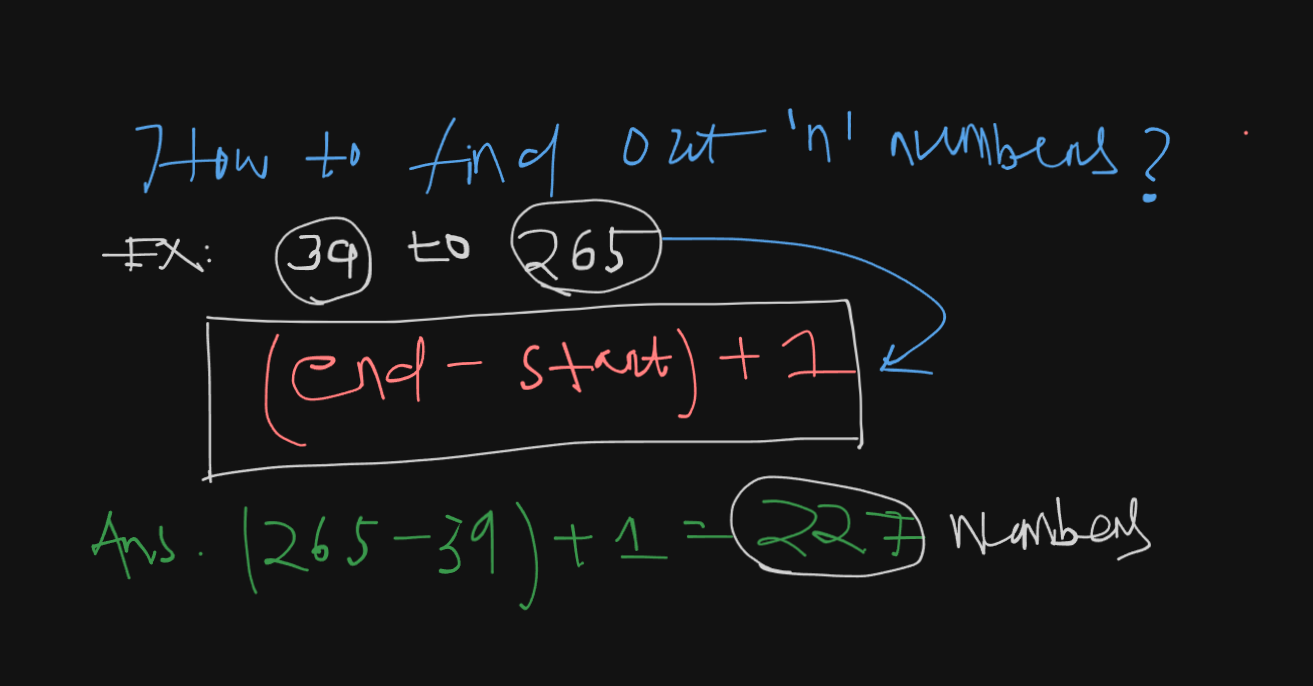 How to find out 'n' numbers?
Ex: 39 to 265
(end - start) + 1
Ans. (265-39) + 1 = 227 Numbers